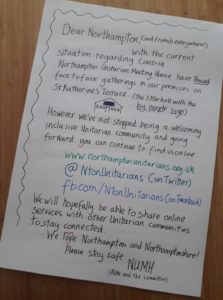 Dear Northampton, (and friends everywhere!)
with the current
situation regarding Covid-19
Northampton Unitarian Meeting House have paused
face to face gatherings in our premises on
St Katherine's Terrace (the little hall with the
big purple sign)
However we've not stopped being a welcoming
inclusive Unitarian community and going
forward you can continue to find us online
www.northamptonunitarians.org.uk
@NtonUnitarians (on Twitter)
fb.com/NtonUnitarians (on Facebook)
We will hopefully be able to share online
services with other Unitarian communities
to stay connected.
We love Northampton and Northamptonshire!
Please stay safe
NUMH
(Kate and the committee)